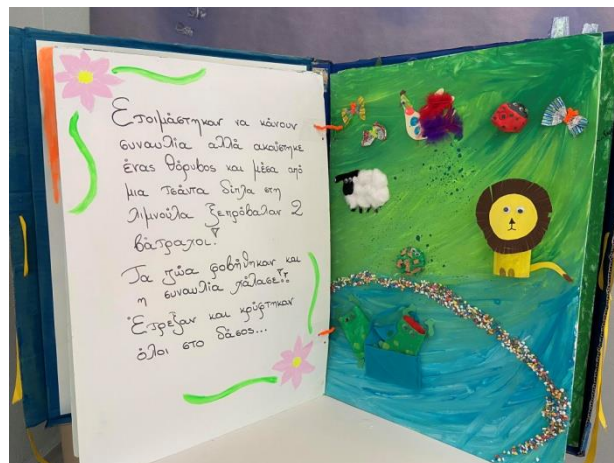 Ετοιμάστηκαν να κάνουν
συναυλία αλλά ακούστηκε
ένας θόρυβος και μέσα από
μια τσάντα δίπλα στη
λιμνούλα ξεπρόβαλαν 2
βάτραχοι!
Τα ζώα φοβήθηκαν και
η συναυλία χάλασε!!
Έτρεξαν και κρύφτηκαν
όλοι στο δάσος...